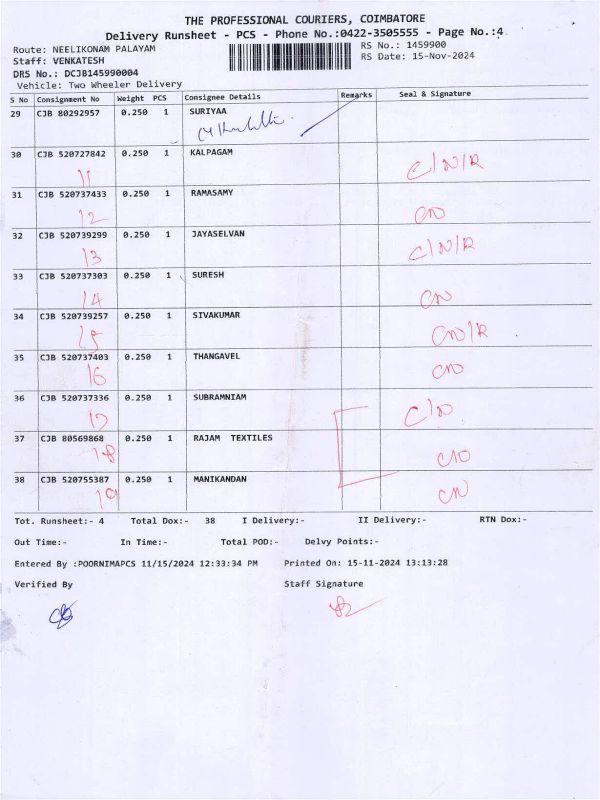 THE PROFESSIONAL COURIERS, COIMBATORE
Delivery Runsheet - PCS - Phone No.:0422-3505555 - Page No.:4
Route: NEELIKONAM PALAYAM
RS No.: 1459900
Staff: VENKATESH
RS Date: 15-Nov-2024
DRS No.: DCJB145990004
Vehicle: Two Wheeler Delivery
S No Consignment No Weight PCS Consignee Details Remarks Seal & Signature
29 CJB 80292957 0.250 1 SURIYAA
30 CJB 520727842 0.250 1 KALPAGAM
11 C/N/R
31 CJB 520737433 0.250 1 RAMASAMY
12 CN
32 CJB 520739299 0.250 1 JAYASELVAN
13 C/N/R
33 CJB 520737303 0.250 1 SURESH
14 CN
34 CJB 520739257 0.250 1 SIVAKUMAR
15 CN/R
35 CJB 520737403 0.250 1 THANGAVEL
16 CN
36 CJB 520737336 0.250 1 SUBRAMNIAM
17 C/N
37 CJB 80569868 0.250 1 RAJAM TEXTILES
18
38 CJB 520755387 0.250 1 MANIKANDAN
19 CN
Tot. Runsheet:- 4 Total Dox:- 38 I Delivery:- II Delivery:- RTN Dox:-
Out Time:- In Time:- Total POD:- Delvy Points:-
Entered By :POORNIMAPCS 11/15/2024 12:33:34 PM Printed On: 15-11-2024 13:13:28
Verified By Staff Signature